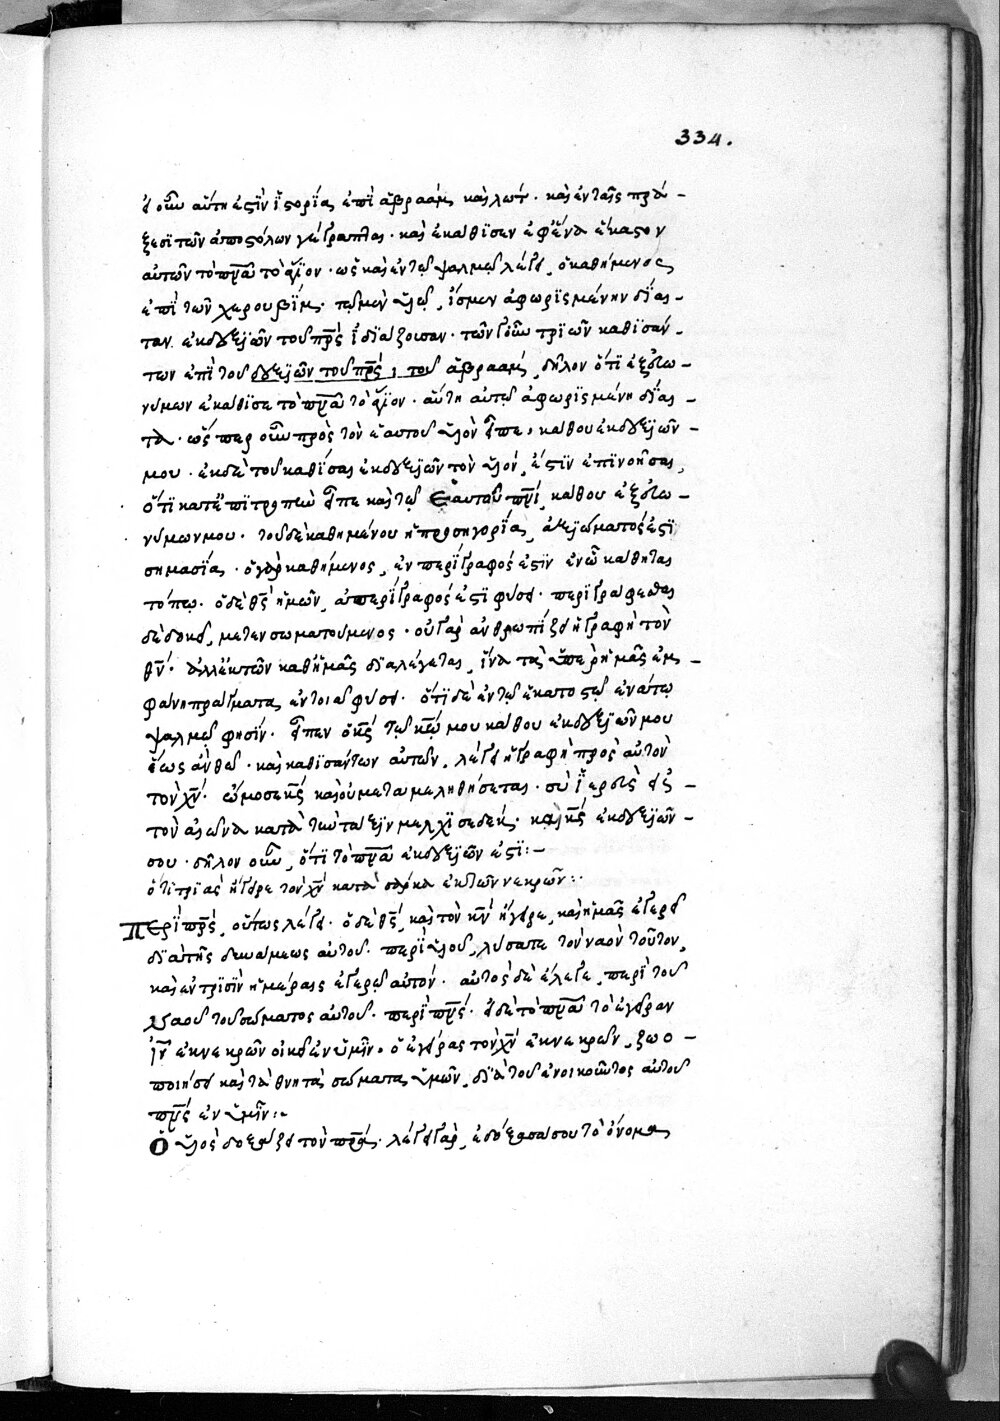 334.
εἰ οὖν αὕτη ἐστὶν ἱστορία ἐπὶ ἀβραὰμ καὶ λώτ· καὶ ἐν ταῖς πρά-
ξεσι τῶν ἀποστόλων γέγραπται· καὶ ἐκάθισεν ἐφ' ἕνα ἕκαστον
αὐτῶν τὸ πνᾶ τὸ ἅγιον· ὡς καὶ ἐν τῷ ψαλμῷ λέγει, ὁ καθήμενος
ἐπὶ τῶν χερουβίμ· τῷ μὲν υἱῷ, ἴσμεν ἀφωρισμένην δίαι-
ταν ἐκ δεξιῶν τοῦ πρς ἰδιάζουσαν· τῶν γοῦν τριῶν καθισάν-
των ἐπὶ τοῦ δεξιῶν τοῦ πρς, τοῦ ἀβραὰμ, δῆλον ὅτι ἐξ εὐω-
νύμων ἐκάθισε τὸ πνᾶ τὸ ἅγιον· αὕτη αὐτῷ ἀφωρισμένη δίαι-
τα· ὥσπερ οὖν πρὸς τὸν ἑαυτοῦ υἱὸν εἶπε, κάθου ἐκ δεξιῶν
μου· ἐκ δὲ τοῦ καθίσαι ἐκ δεξιῶν τὸν υἱόν, ἔστιν ἐπινοῆσαι,
ὅτι κατ' ἐπιτροπὴν εἶπε καὶ τῷ ἑαυτοῦ πνι, κάθου ἐξ εὐω-
νύμων μου· τοῦ δὲ καθημένου ἡ προσηγορία, ἀξιώματός ἐστι
σημασία· ὁ γὰρ καθήμενος, ἐν περιγραφός ἐστιν ἐν ᾧ κάθηται
τόπῳ· ὁ δὲ θς ἡμῶν, ἀπερίγραφός ἐστι φύσει· περιγράφεσθαι
δὲ δοκεῖ, μετενσωματούμενος· οὐ γὰρ ἀνθρωπίζει ἡ γραφὴ τὸν
θν· ἀλλ' ἐκ τῶν καθ' ἡμᾶς διαλέγεται, ἵνα τὰ ὑπὲρ ἡμᾶς ἐμ-
φανῆ πράγματα, ἐν τοιαῦ φύσει· ὅτι δὲ ἐν τῷ ἑκατοστῷ ἐνάτῳ
ψαλμῷ φησίν· εἶπεν ὁ κς τῷ κω μου κάθου ἐκ δεξιῶν μου
ἕως ἂν θῶ· καὶ καθισάντων αὐτῶν, λέγει ἡ γραφὴ πρὸς αὐτὸν
τὸν χν· ὤμοσε κς καὶ οὐ μεταμεληθήσεται· σὺ ἱερεὺς εἰς
τὸν αἰῶνα κατὰ τὴν τάξιν μελχισεδέκ· καὶ κς ἐκ δεξιῶν
σου· δῆλον οὖν, ὅτι τὸ πνᾶ ἐκ δεξιῶν ἐστι:-
ὅτι τριὰς ἤγειρε τὸν χν κατὰ σάρκα ἐκ τῶν νεκρῶν:·
Περὶ πρς, οὕτως λέγει· ὁ δὲ θς, καὶ τὸν κν ἤγειρε, καὶ ἡμᾶς ἐγερεῖ
διὰ τῆς δυνάμεως αὐτοῦ· περὶ υἱοῦ, λύσατε τὸν ναὸν τοῦτον,
καὶ ἐν τρισὶν ἡμέραις ἐγερῶ αὐτόν· αὐτὸς δὲ ἔλεγε, περὶ τοῦ
ναοῦ τοῦ σώματος αὐτοῦ· περὶ πνς· εἰ δὲ τὸ πνᾶ τὸ ἐγεῖραν
ιν ἐκ νεκρῶν οἰκεῖ ἐν ὑμῖν· ὁ ἐγείρας τὸν χν ἐκ νεκρῶν, ζωο-
ποιήσει καὶ τὰ θνητὰ σώματα ὑμῶν, διὰ τοῦ ἐνοικοῦντος αὐτοῦ
πνς ἐν ὑμῖν:-
Ὁ υἱὸς δοξάζει τὸν πρα· λέγει γάρ, ἐδόξασά σου τὸ ὄνομα